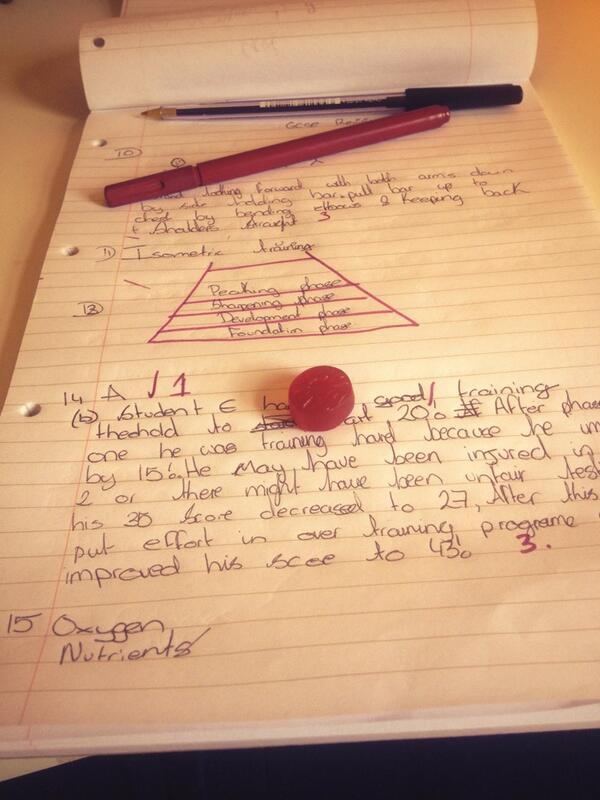 GCSE
10
looking forward with both arms down
by side holding bar. pull bar up to
chest by bending elbows & Keeping back
+ Shoulders straight 3
11) Isometric training
13
Peaking phase
Sharpening phase
Development phase
Foundation phase
14 A 1
(b) Student E good training
thechold to at 20% After phase
one he was training hard because he im
by 15%. He may have been injured in
2 or there might have been unfair testi
his score decreased to 27, After this
put effort in over training programe
improved his scee to 43% 3.
15 Oxygen
Nutrients